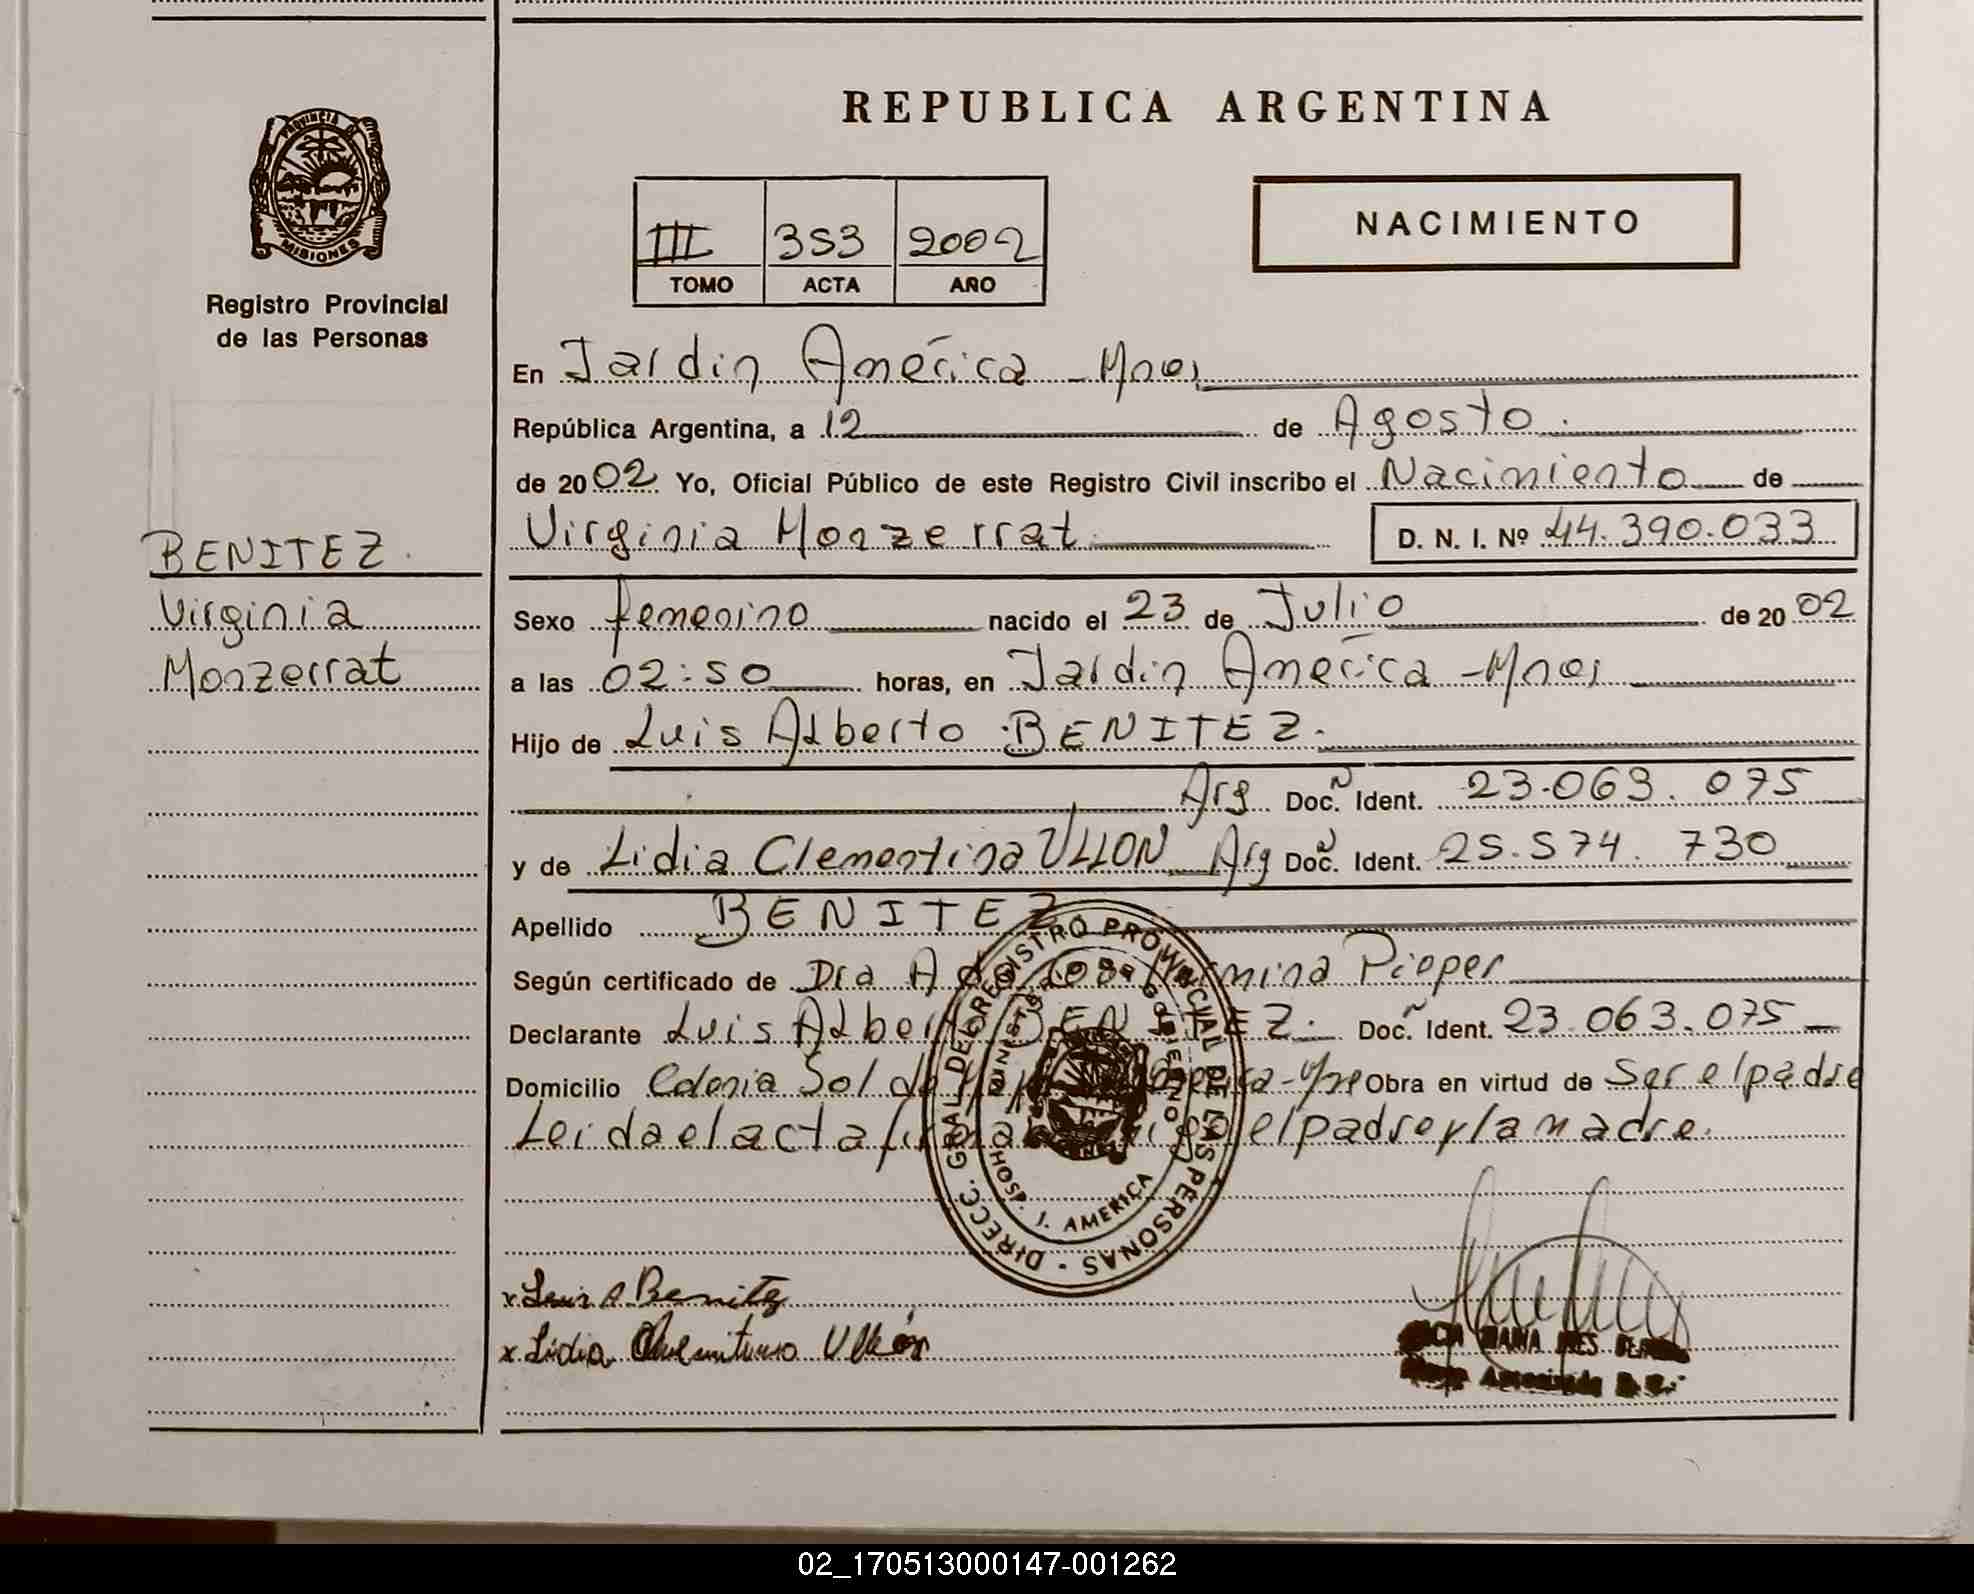 REPUBLICA ARGENTINA
PROVINCIA DE
MISIONES
Registro Provincial
de las Personas
NACIMIENTO
III 353 2002
TOMO ACTA AÑO
En Jardin América - Mnes
República Argentina, a 12 de Agosto
de 2002 Yo, Oficial Público de este Registro Civil inscribo el Nacimiento de
Virginia Monzerrat D. N. I. Nº 44.390.033
BENITEZ
Virginia
Monzerrat
Sexo femenino nacido el 23 de Julio de 2002
a las 02:50 horas, en Jardin América - Mnes
Hijo de Luis Alberto BENITEZ.
Arg Doc. Ident. 23.063.075
y de Lidia Clementina ULLON Arg Doc. Ident. 25.574.730
Apellido BENITEZ
Según certificado de Dra Pieper
Declarante Luis Alberto BENITEZ. Doc. Ident. 23.063.075
Domicilio Colonia Sol de Obra en virtud de Ser el padre
Leida el acta el padre y la madre.
DIRECC. GRAL DEL REGISTRO PROVINCIAL DE LAS PERSONAS
MINISTERIO GOBIERNO
HOSP. J. AMERICA
x Luis A Benitez
x Lidia Ullón
MARIA INES
02_170513000147-001262